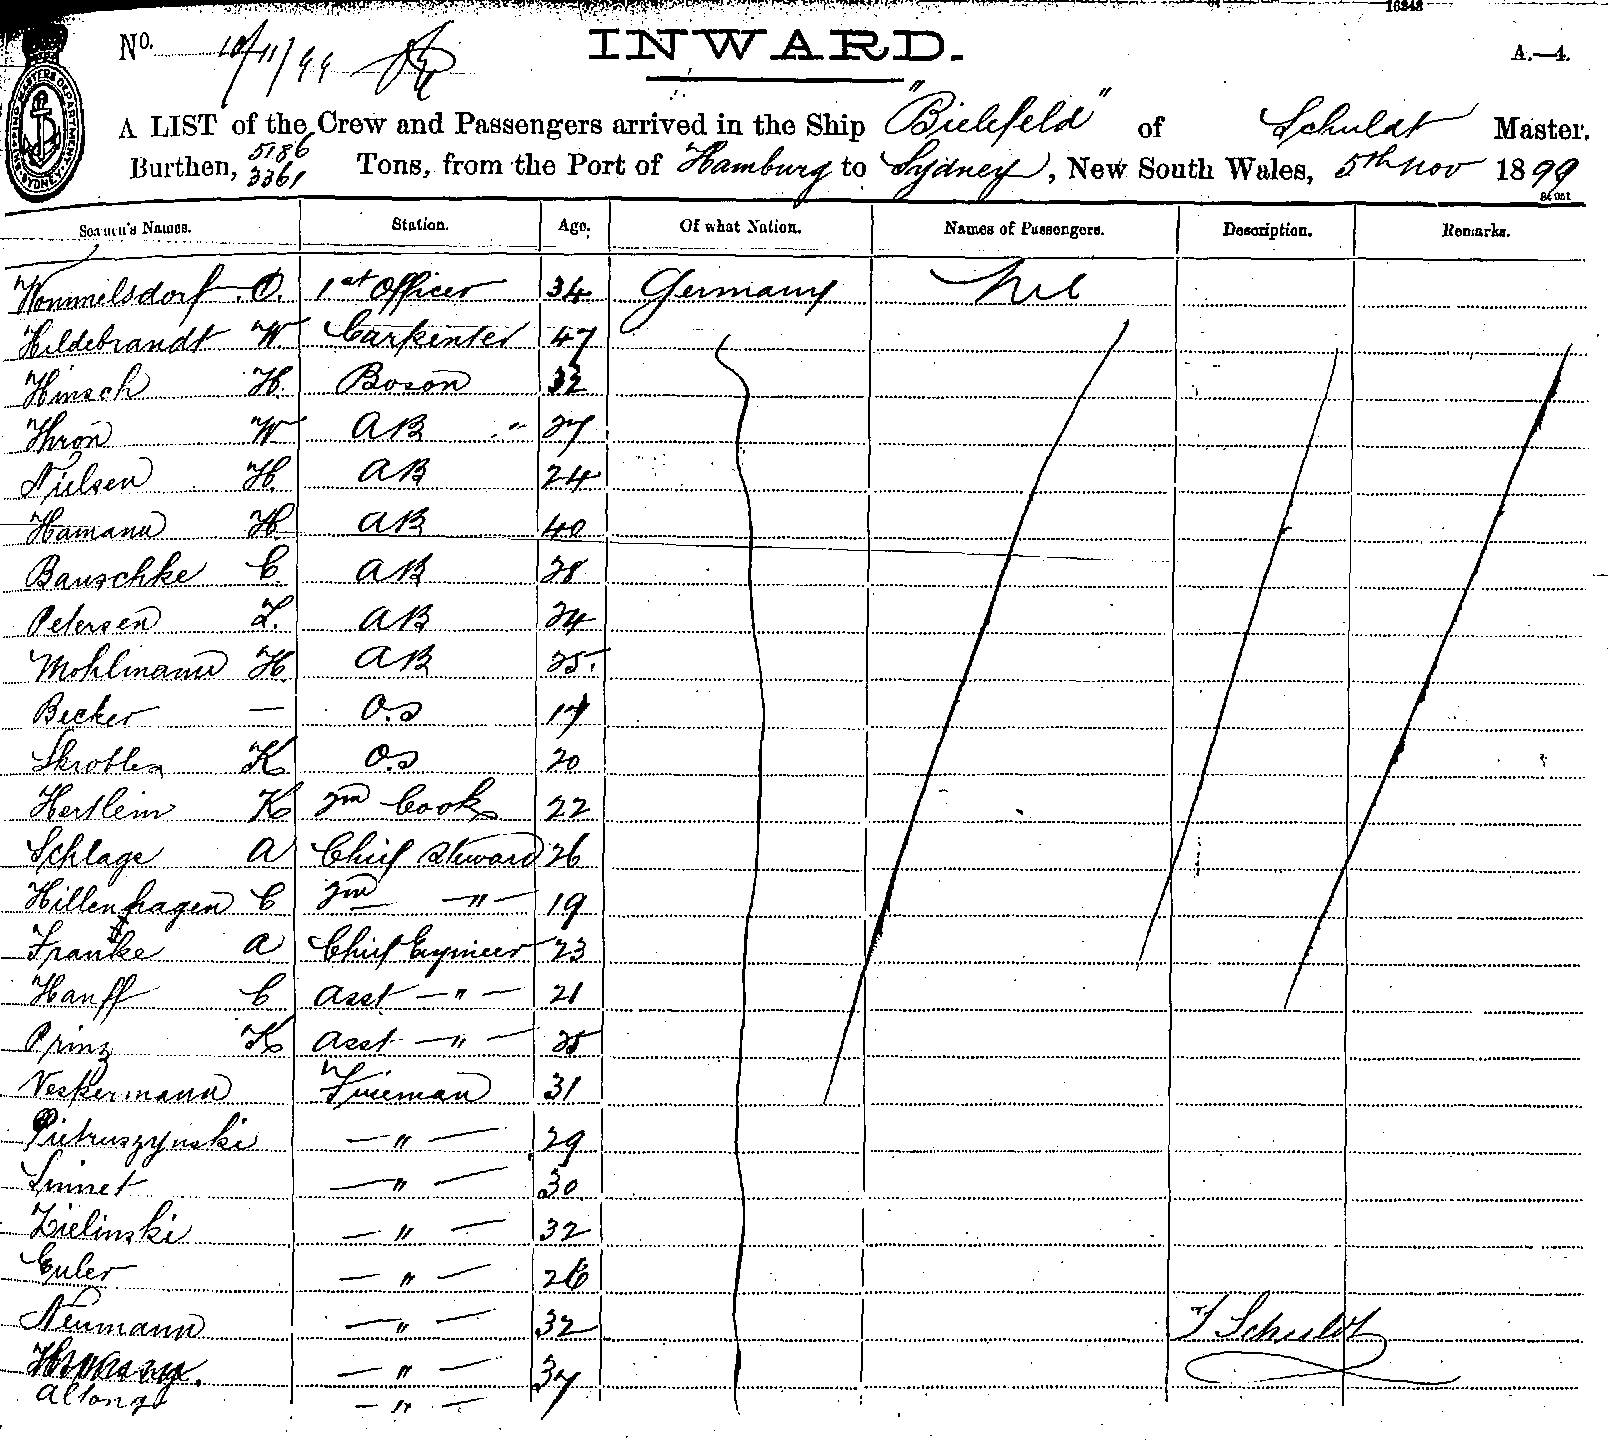 16243
No. 10/11/99
INWARD.
A.—4.
SHIPPING MASTERS DEPARTMENT SYDNEY
A LIST of the Crew and Passengers arrived in the Ship "Bielefeld" of Schuldt Master,
Burthen, 5186 3361 Tons, from the Port of Hamburg to Sydney, New South Wales, 5th Nov 1899
Seamen's Names. Station. Age. Of what Nation. Names of Passengers. Description. Remarks.
Wommelsdorf O. 1st Officer 34 Germany Nil
Hildebrandt W Carpenter 47
Hinsch H. Boson 32
Thron W AB " 27
Nielsen H. AB 24
Hamann H AB 40
Bauschke C AB 28
Petersen L. AB 24
Mohlmann H. AB 25.
Becker — O.S 17
K O.S 20
Hertlein K 2nd Cook 22
Schlage A Chief Steward 26
Hillenhagen C 2nd — " — 19
Franke A Chief Engineer 23
Hanff C Asst — " — 21
Prinz K Asst — " — 25
Veskermann Fireman 31
Pietruszynski — " — 29
Linnet — " — 30
Zielinski — " — 32
Euler — " — 26
Neumann — " — 32
— " — 37
Altona — " —
J Schuldt